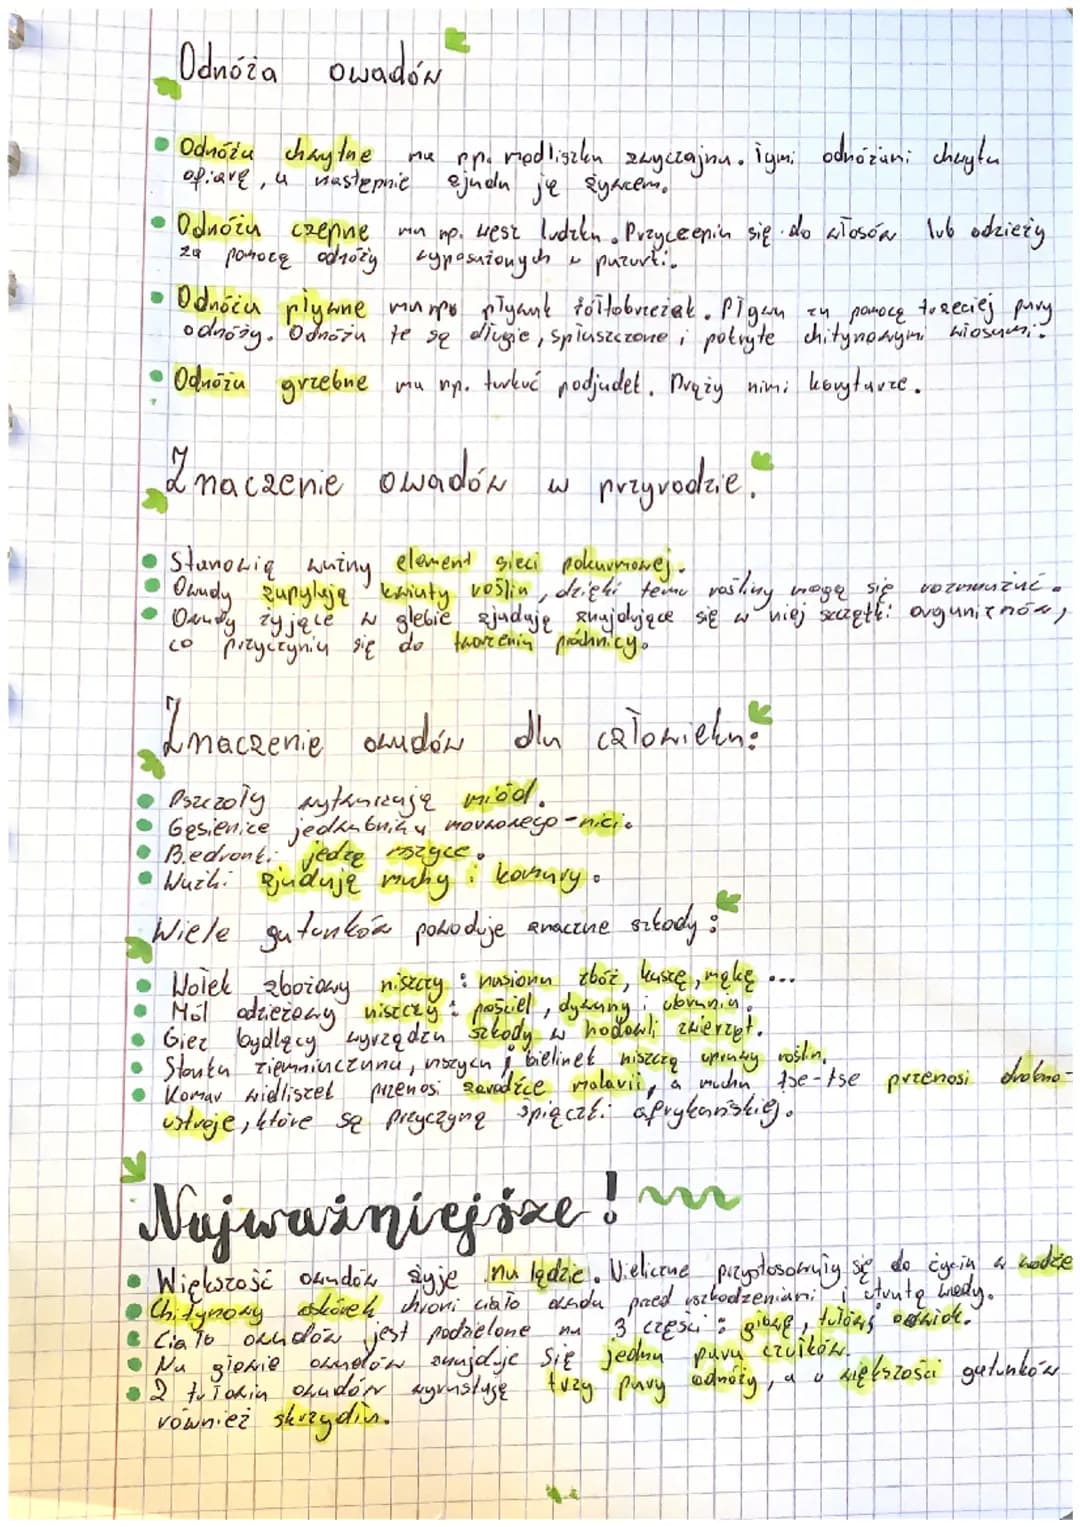 Odnóża owadów
Odnóża chwytne ma np. modliszka zwyczajna. Tymi odnóżami chwyta
ofiarę, a następnie zjada ję żywcem.
Odnóża czepne ma np. wesz ludzka. Przyczepia się do włosów lub odzieży
za pomocą odnóży wyposażonych w pazurki.
Odnóża pływne ma np. pływak żółtobrzeżek. Pływa za pomocą trzeciej pary
odnóży. Odnóża te są długie, spłaszczone i pokryte chitynowymi włosami.
Odnóża grzebne ma np. turkuć podjadek. Drąży nimi korytarze.
Znaczenie owadów w przyrodzie.
Stanowią ważny element sieci pokarmowej.
Owady zapylają kwiaty roślin, dzięki temu rośliny mogą się rozmnażać.
Owady żyjące w glebie zjadają znajdujące się w niej szczątki organizmów,
co przyczynia się do tworzenia próchnicy.
Znaczenie owadów dla człowieka:
Pszczoły wytwarzają miód.
Gąsienice jedwabnika morwowego - nici.
Biedronki jedzą mszyce.
Ważki zjadają muchy i komary.
Wiele gatunków powoduje znaczne szkody:
Wołek zbożowy niszczy: nasiona zbóż, kaszę, mąkę ...
Mól odzieżowy niszczy: pościel, dywany i ubrania.
Giez bydlęcy wyrządza szkody w hodowli zwierząt.
Stonka ziemniaczana, mszyca i bielinek niszczą uprawy roślin.
Komar widliszek przenosi zarodźce malarii, a mucha tse-tse przenosi drobno-
ustroje, które są przyczyną śpiączki afrykańskiej.
Najważniejsze!
Większość owadów żyje na lądzie. Nieliczne przystosowały się do życia w wodzie
Chitynowy oskórek chroni ciało owada przed uszkodzeniami i utratą wody.
Ciało owadów jest podzielone na 3 części: głowę, tułów i odwłok.
Na głowie owadów znajduje się jedna para czułków.
Z tułowia owadów wyrastają trzy pary odnóży, a u większości gatunków
również skrzydła.